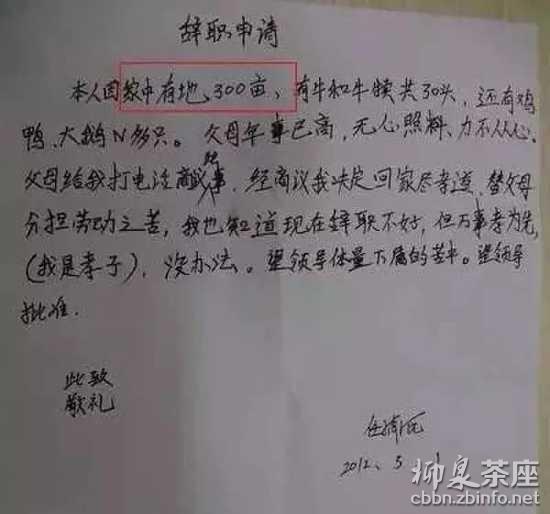 辞职申请
本人因家中有地300亩、有牛和牛犊共30头,还有鸡
鸭、大鹅N多只。父母年事已高,无心照料、力不从心。
父母给我打电话商议此事,经商议我决定回家尽孝道,替父母
分担劳动之苦,我也知道现在辞职不好,但万事孝为先,
(我是孝子),没办法。望领导体量下属的苦中。望领导
批准.
此致
敬礼
2012、3、1
柳泉茶座
cbbn.zbinfo.net